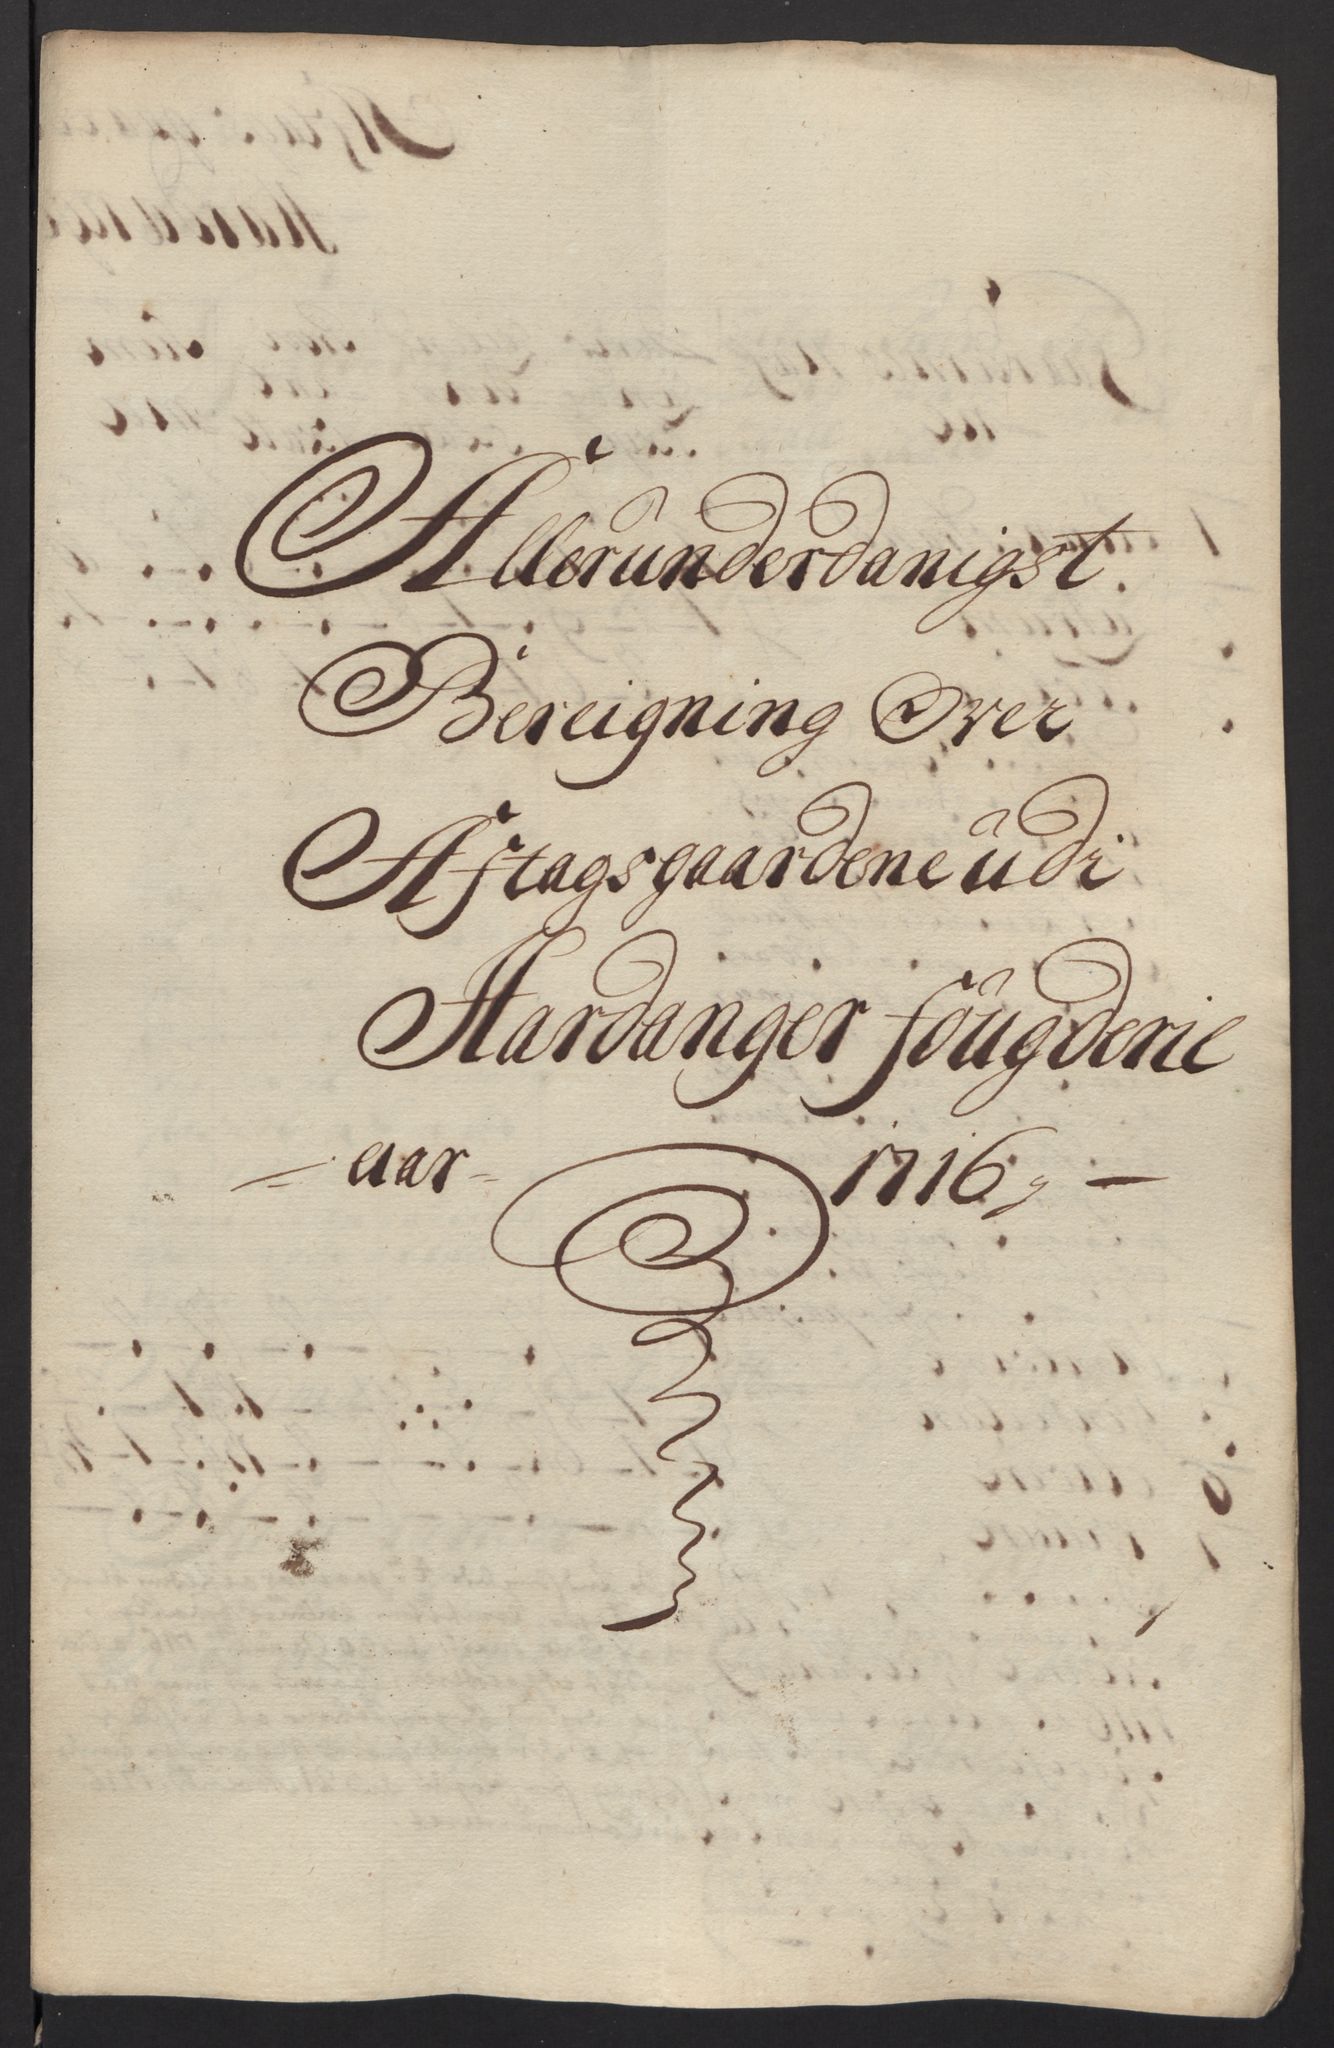 Allerunderdanigst
Bereigning Over
Aftagsgaardene udi
Hardanger fougderie
aar 1716,